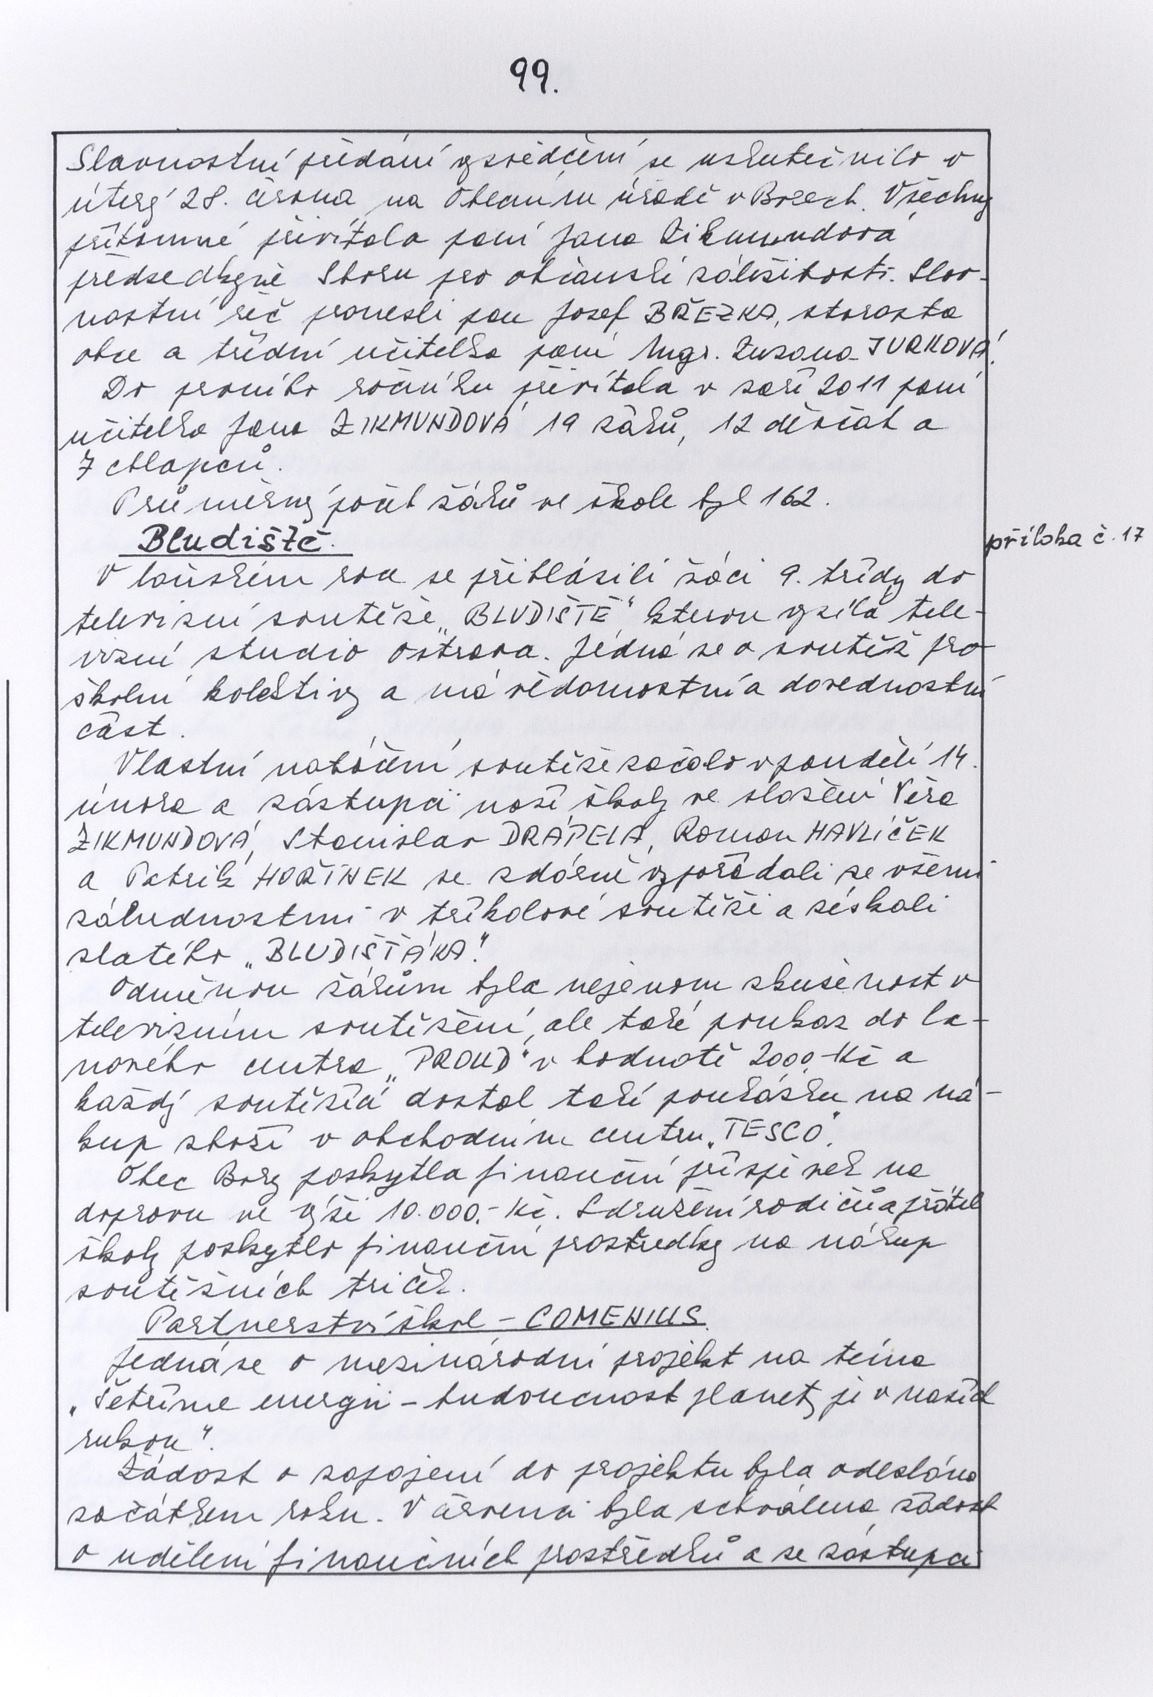 99.
Slavnostní předání vysvědčení se uskutečnilo v
úterý 28. června na Obecním úřadě v Borech. Všechny
přítomné přivítala paní Jana Zikmundová
předsedkyně Sboru pro občanské záležitosti. Slav-
nostní řeč pronesli pan Josef BŘEZKA, starosta
obce a třídní učitelka paní Mgr. Zuzana JURKOVÁ.
Do prvního ročníku přivítala v září 2011 paní
učitelka Jana ZIKMUNDOVÁ 19 žáků, 12 děvčat a
7 chlapců.
Průměrný počet žáků ve škole byl 162.
Bludiště.
příloha č. 17
V loňském roce se přihlásili žáci 9. třídy do
televizní soutěže „BLUDIŠTĚ" kterou vysílá tele-
vizní studio Ostrava. Jedná se o soutěž pro
školní kolektivy a má vědomostní a dovednostní
část.
Vlastní natáčení soutěže začalo v pondělí 14.
února a zástupci naší školy ve složení Věra
ZIKMUNDOVÁ, Stanislav DRÁPELA, Roman HAVLÍČEK
a Patrik HOŘÍNEK se zdárně vypořádali se všemi
záludnostmi v tříkolové soutěži a získali
zlatého „BLUDIŠŤÁKA".
Odměnou žákům byla nejenom zkušenost v
televizním soutěžení, ale také poukaz do la-
nového centra „PROUD" v hodnotě 2000,-Kč a
každý soutěžící dostal také poukázku na ná-
kup zboží v obchodním centru „TESCO".
Obec Bory poskytla finanční příspěvek na
dopravu ve výši 10.000,- Kč. Sdružení rodičů a přátel
školy poskytlo finanční prostředky na nákup
soutěžních triček.
Partnerství škol - COMENIUS
Jedná se o mezinárodní projekt na téma
„Šetříme energii - budoucnost planety je v našich
rukou".
Žádost o zapojení do projektu byla odeslána
začátkem roku. V červenci byla schválena žádost
o udělení finančních prostředků a se zástupci